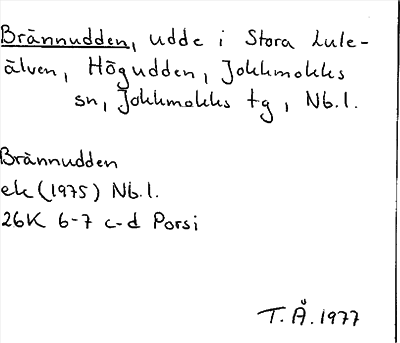 Brännudden, udde i Stora Lule-
älven, Högudden, Jokkmokks
sn, Jokkmokks tg, Nb.l.
Brännudden
ek (1975) Nb.l.
26K 6-7 c-d Porsi
T. Å. 1977